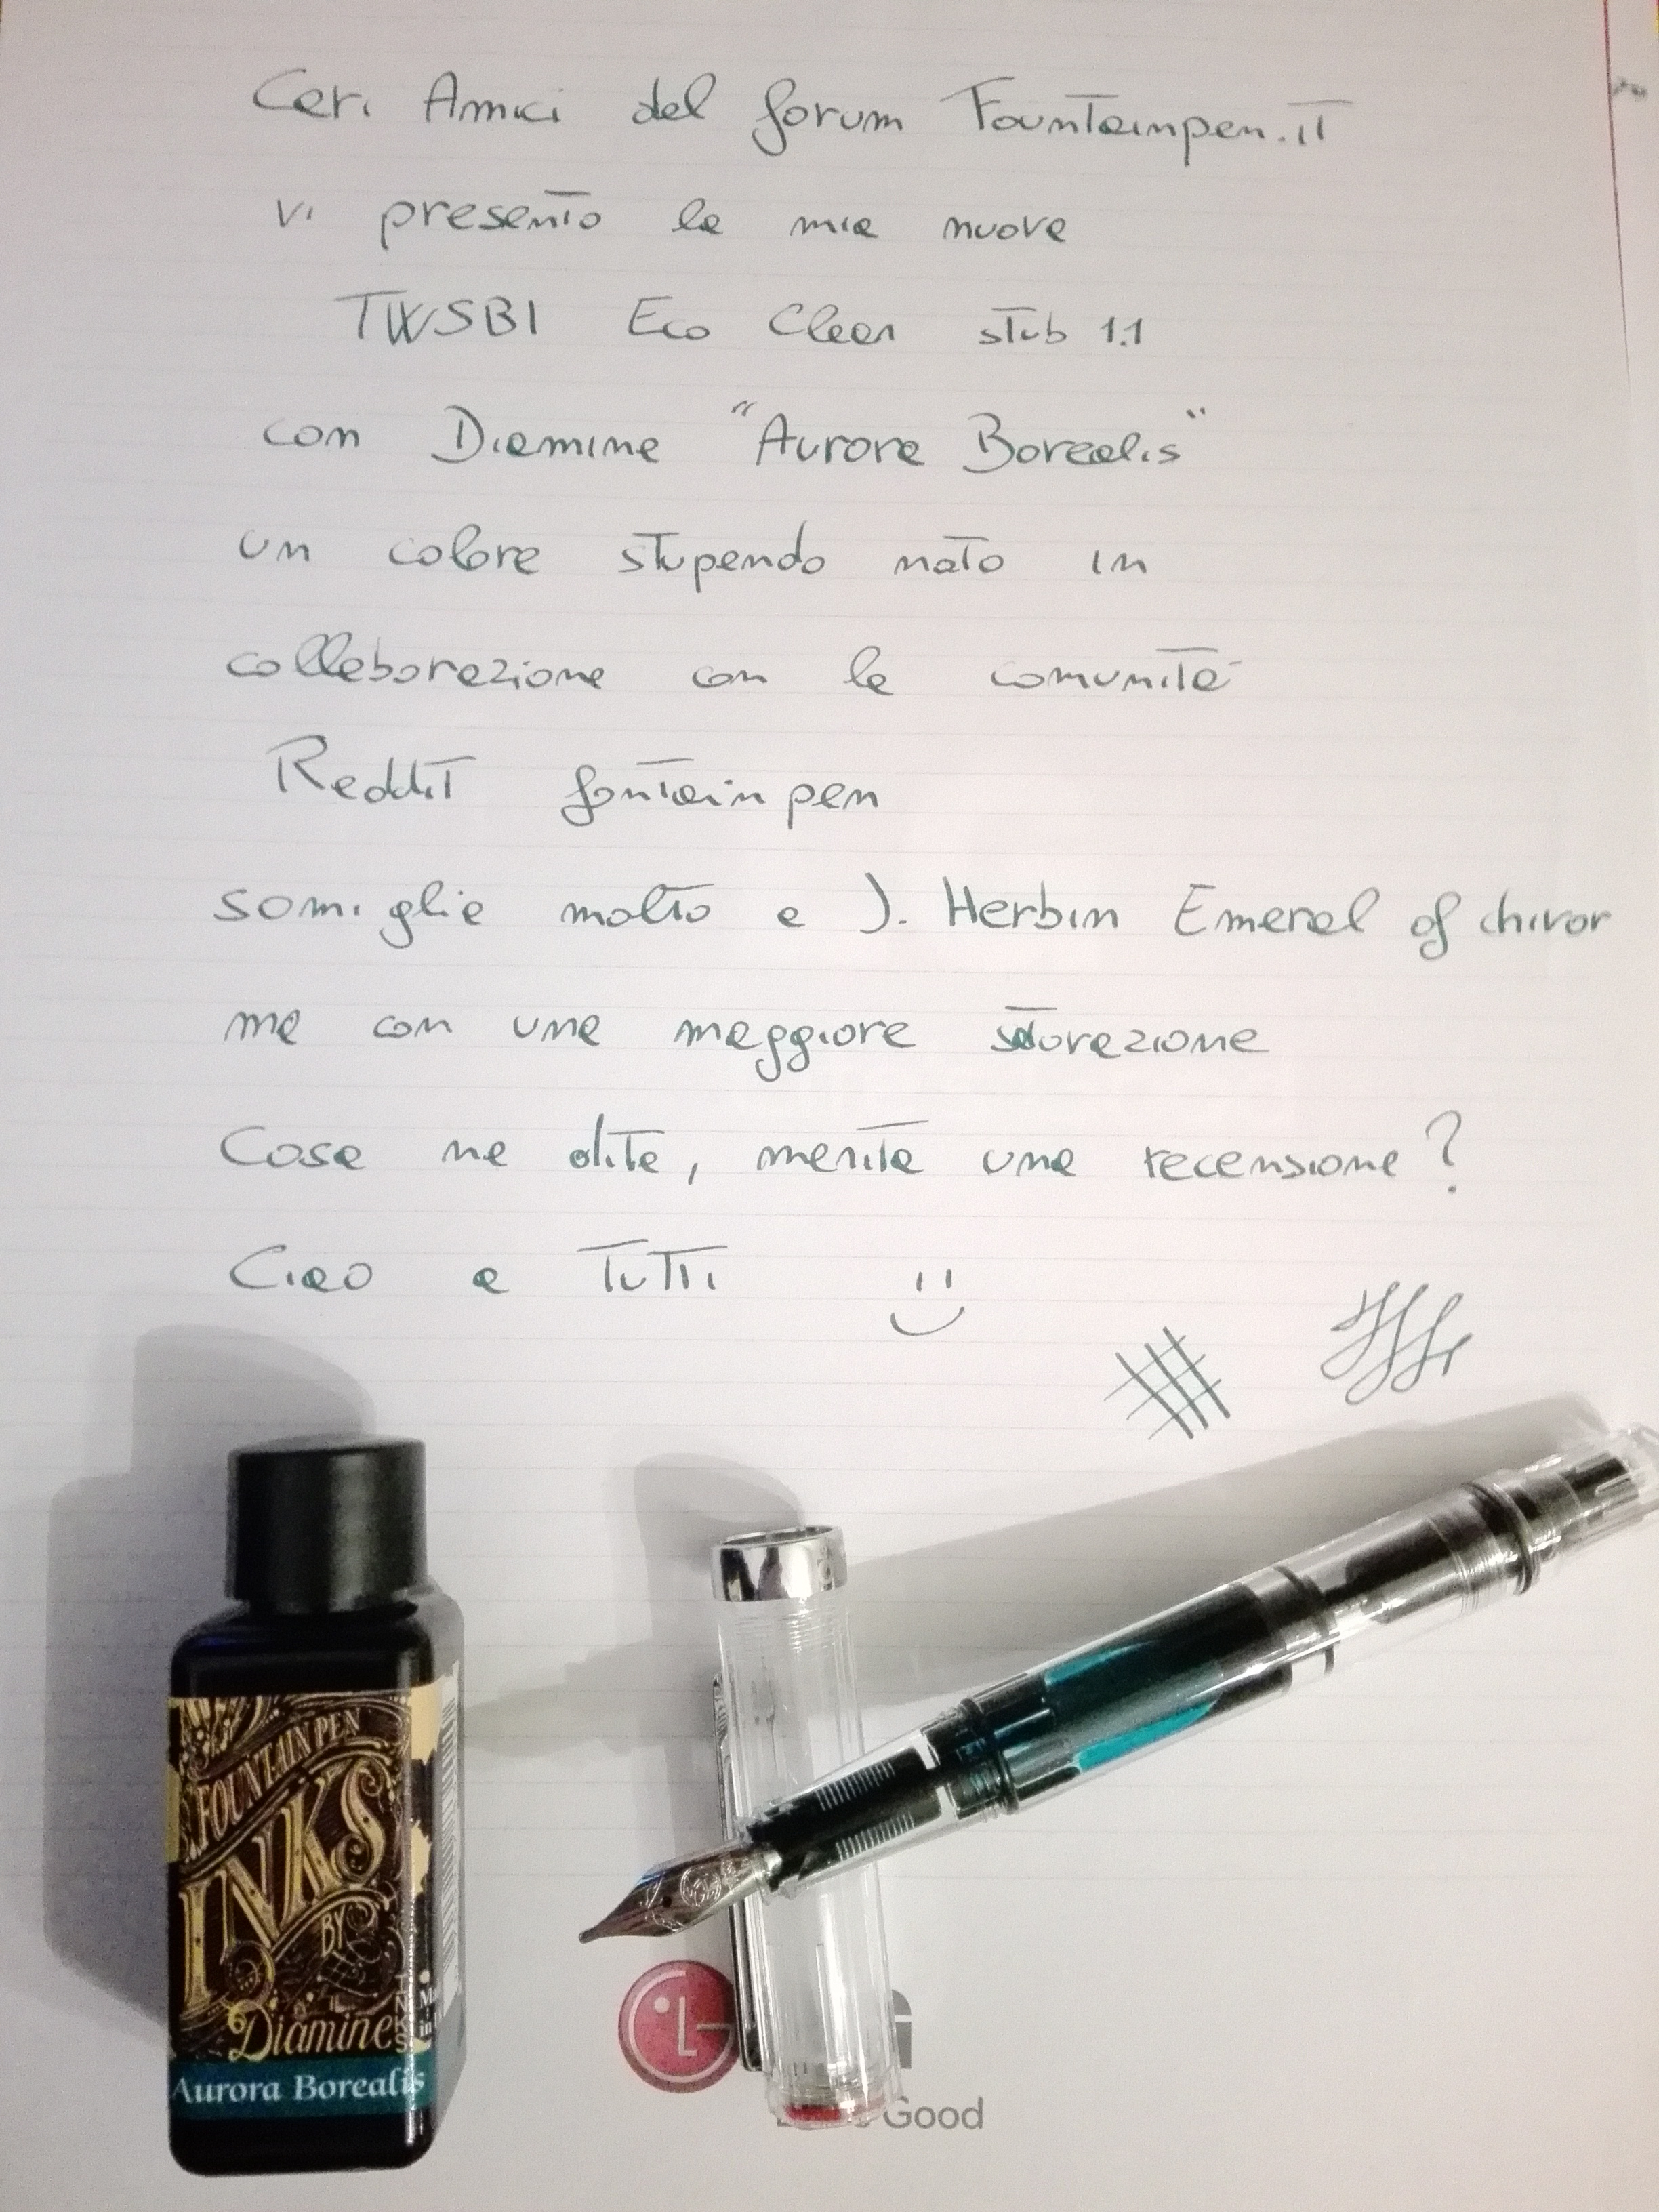 Cari Amici del forum Fountainpen.it
vi presento la mia nuova
TWSBI Eco Clear stub 1.1
con Diamine "Aurora Borealis"
un colore stupendo nato in
collaborazione con la comunità
Reddit fontainpen
somiglia molto a J. Herbin Emeral of chivor
ma con una maggiore saturazione
Cosa ne dite, merita una recensione?
Ciao a Tutti
FOUNTAIN PEN
INKS
BY
Diamine
Aurora Borealis
LG
Good